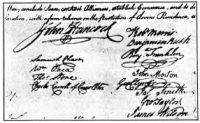 War, conclude Peace, contract Alliances, establish Commerce, and to do
declaration, with a firm reliance on the protection of divine Providence, we
John Hancock
Robt Morris
Benjamin Rush
Benj. Franklin
Samuel Chase
Wm. Paca
Thos. Stone
Charles Carroll of Carrollton
John Morton
Geo Clymer
Jas. Smith
Geo. Taylor
James Wilson